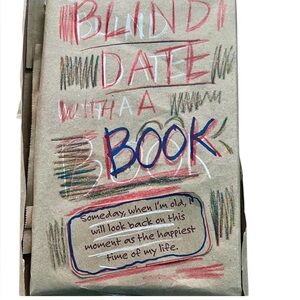 BLIND
DATE
WITH A A
BOOK
Someday, when I'm old, I
will look back on this
moment as the happiest
time of my life.